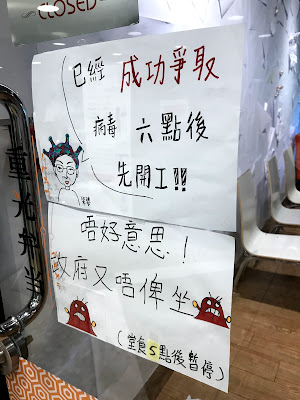 CLOSED
已經 成功爭取
病毒 六點後
先開工!!
唔好意思!
政府又唔俾坐
(堂食5點後暫停)